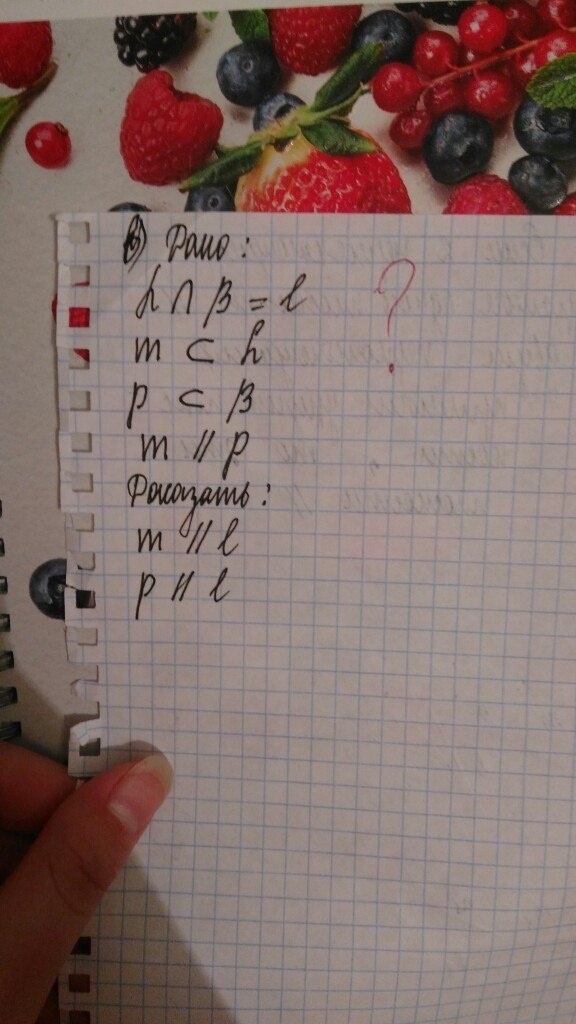 в) Дано: ?
α ∩ β = l
m ⊂ α
p ⊂ β
m // p
Доказать:
m // l
p // l